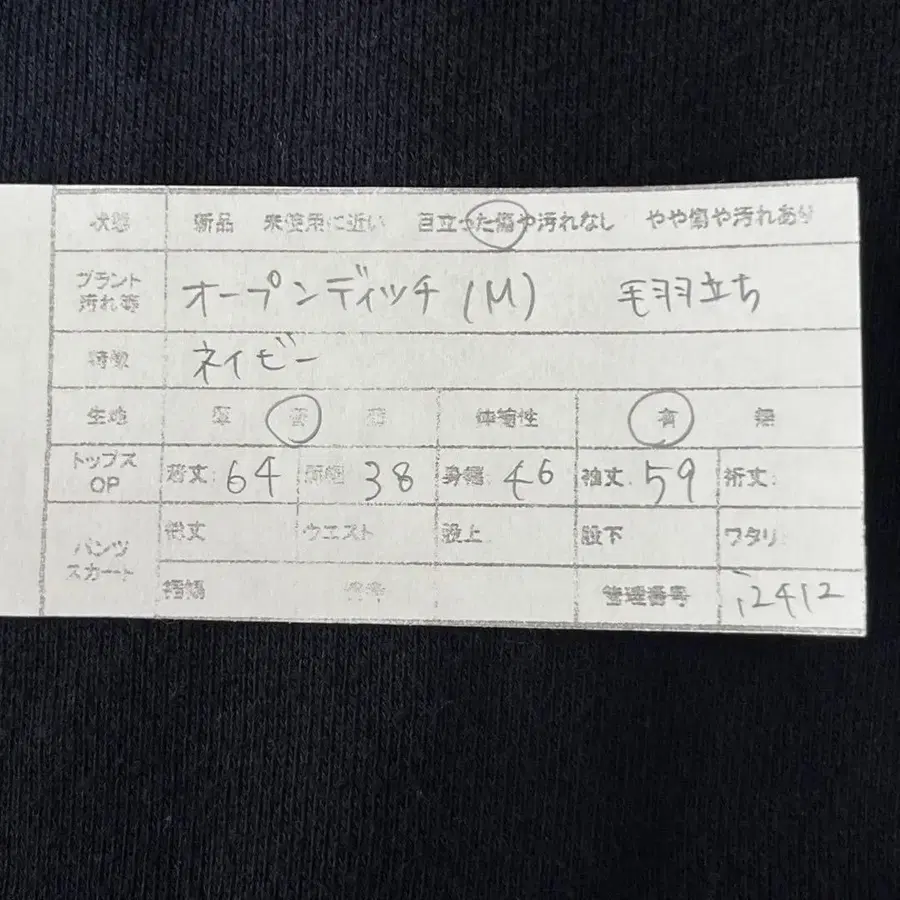 状態 新品 未使用に近い 目立った傷や汚れなし やや傷や汚れあり
ブランド 汚れ等 オープンディッチ (M) 毛羽立ち
特徴 ネイビー
生地 厚 普 薄 伸縮性 有 無
トップス OP 着丈: 64 肩幅: 38 身幅: 46 袖丈: 59 裄丈:
パンツ スカート 総丈 ウエスト 股上 股下 ワタリ
裾幅 管理番号 i2412